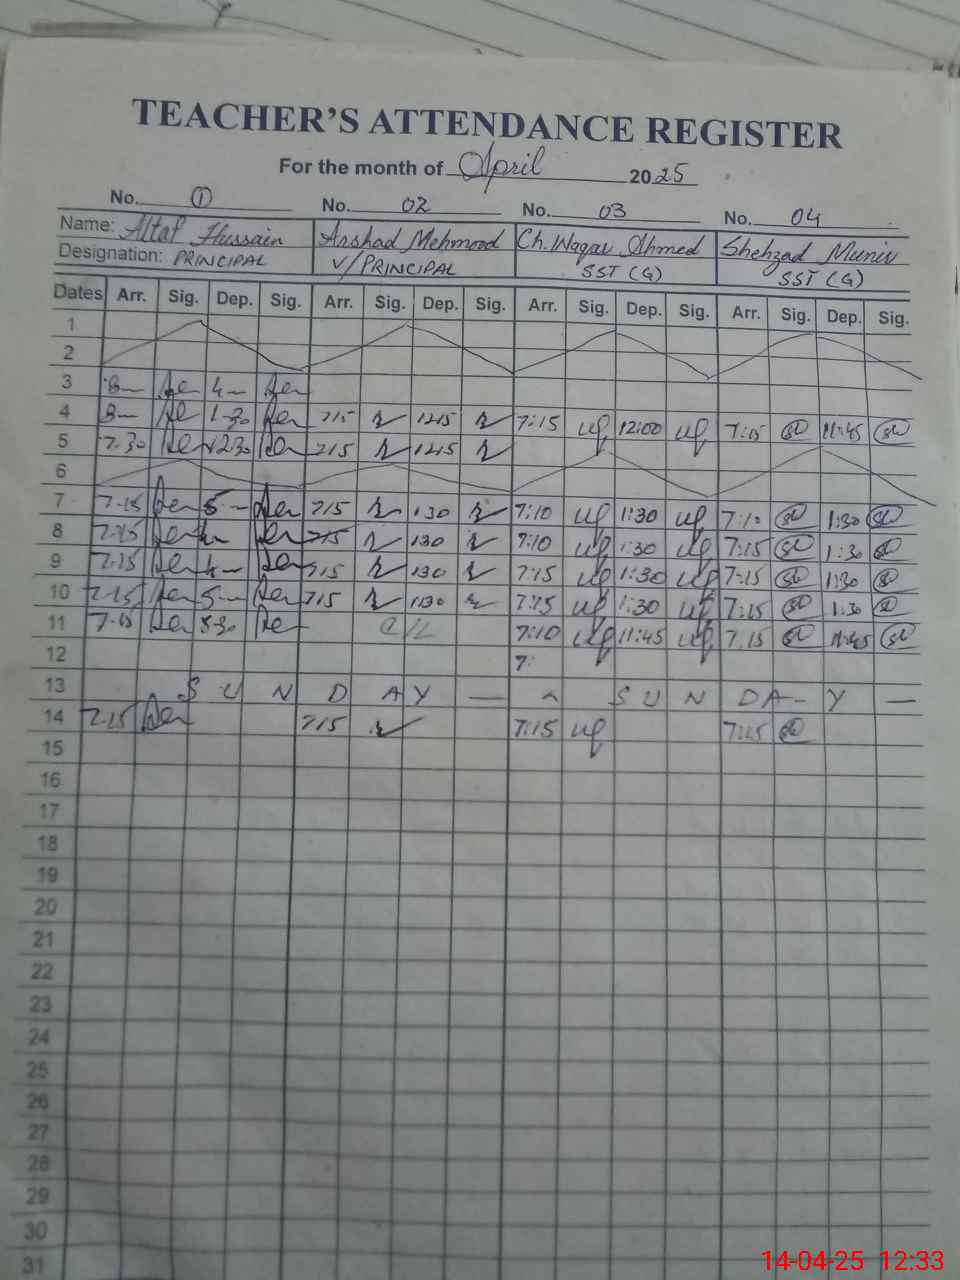 TEACHER'S ATTENDANCE REGISTER
For the month of April 2025
No. 1 No. 02 No. 03 No. 04
Name: Altaf Hussain Arshad Mehmood Ch. Waqar Ahmed Shehzad Munir
Designation: PRINCIPAL V/PRINCIPAL SST (G) SST (G)
Dates Arr. Sig. Dep. Sig. Arr. Sig. Dep. Sig. Arr. Sig. Dep. Sig. Arr. Sig. Dep. Sig.
1
2
3 8— 4—
4 8— 1-30 715 1215 7:15 12:00 7:15 11:45
5 7.30 12.30 715 1215
6
7 7-15 5— 715 130 7:10 1:30 7:10 1:30
8 7-15 715 130 7:10 1:30 7:15 1:30
9 7.15 4— 715 130 7:15 1:30 7:15 1:30
10 7-15 5— 715 130 7:15 1:30 7:15 1:30
11 C/L 7:10 11:45 7.15 11:45
12 7:
13 S U N D A Y — S U N D A - Y —
14 7.15 715 7:15 7:15
15
16
17
18
19
20
21
22
23
24
25
26
27
28
29
30
31
14-04-25 12:33